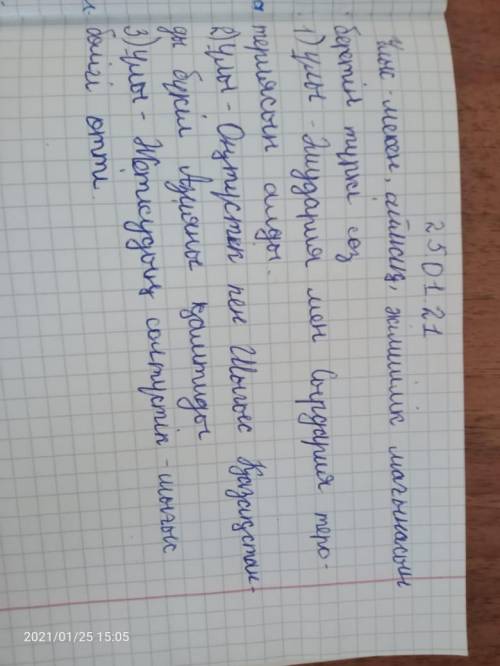 25 01 21
Ұлыс - мекен, аймақ, жишілік мағынасын
беретін түркі сөз
1) ұлы - Әмудария мен Сырдария теро-
териясын алды.
2) ұлы - Оңтүстік пен Шығыс Қазақстан-
ды бүкіл Азияны қамтиды
3) ұлы - Жетісудың солтүстік - шығыс
бөлігі өтті
2021/01/25 15:05